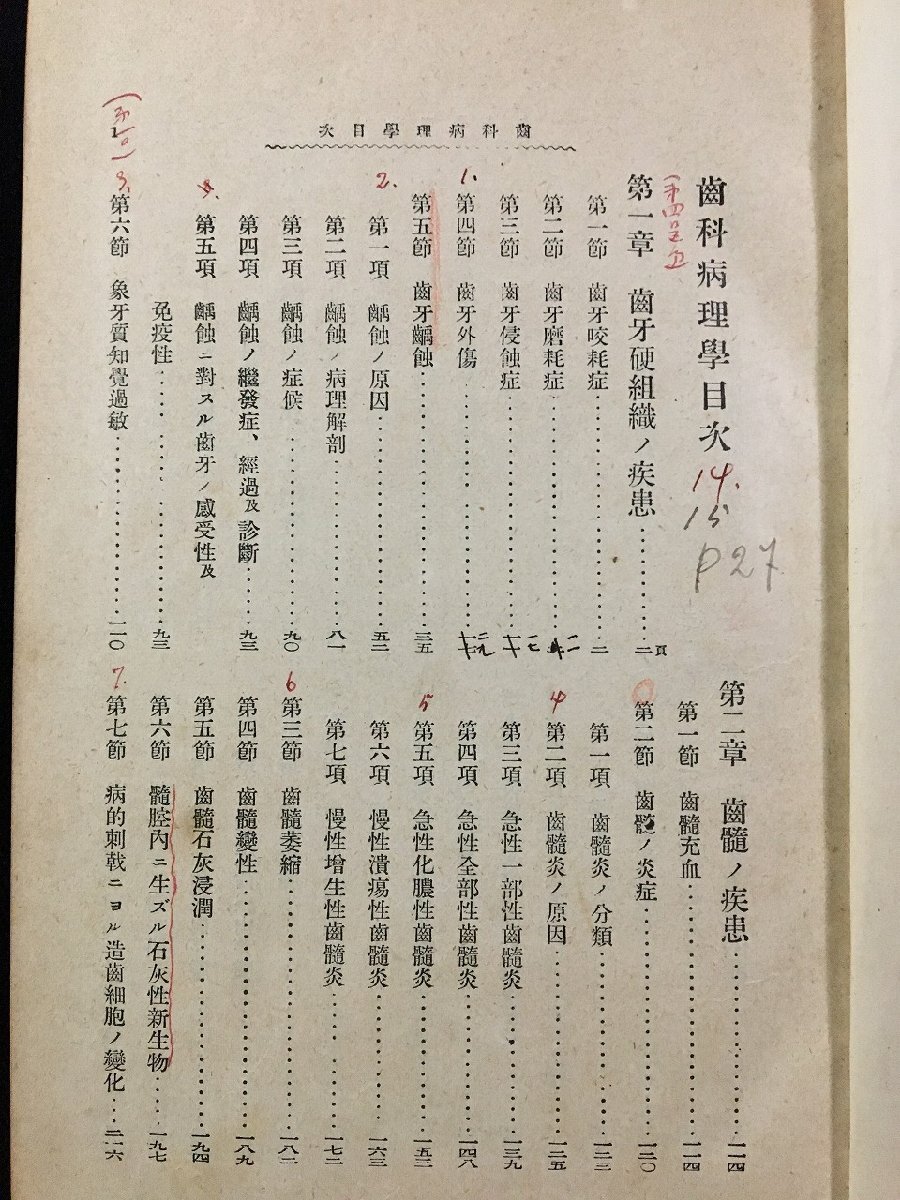 齒科病理學目次
齒科病理學目次
14.
15
P27
第一章　齒牙硬組織ノ疾患…………二頁
第一節　齒牙咬耗症…………二
第二節　齒牙磨耗症…………
第三節　齒牙侵蝕症…………
1.
第四節　齒牙外傷…………
第五節　齒牙齲蝕…………三五
2.
第一項　齲蝕ノ原因…………五二
第二項　齲蝕ノ病理解剖…………八一
第三項　齲蝕ノ症候…………九〇
第四項　齲蝕ノ繼發症、經過及診斷……九三
第五項　齲蝕ニ對スル齒牙ノ感受性及
免疫性…………九三
3.
第六節　象牙質知覺過敏…………一一〇
第二章　齒髓ノ疾患…………一一四
第一節　齒髓充血…………一一四
第二節　齒髓ノ炎症…………一二〇
第一項　齒髓炎ノ分類…………一二二
4
第二項　齒髓炎ノ原因…………一二五
第三項　急性一部性齒髓炎…………一三九
第四項　急性全部性齒髓炎…………一四八
5
第五項　急性化膿性齒髓炎…………一五二
第六項　慢性潰瘍性齒髓炎…………一六三
第七項　慢性增生性齒髓炎…………一七二
6
第三節　齒髓萎縮…………一八二
第四節　齒髓變性…………一八九
第五節　齒髓石灰浸潤…………一九四
第六節　髓腔內ニ生ズル石灰性新生物……一九七
7.
第七節　病的刺戟ニヨル造齒細胞ノ變化……二一六